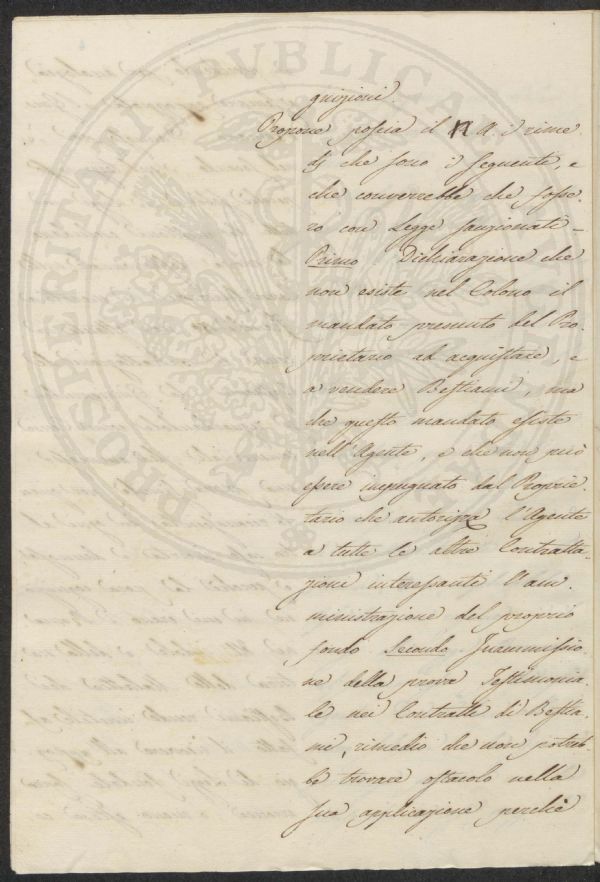 quizioni
Propone poscia il N. A. i rime
dj che sono i seguenti, e
che converrebbe che fosse-
ro con Legge sanzionati -
Primo Dichiarazione che
non esiste nel Colono il
mandato presunto del Pro-
prietario ad acquistare, e
a vendere Bestiami, ma
che questo mandato esiste
nell'Agente, e che non può
essere impugnato dal Proprie-
tario che autorizza l'Agente
a tutte le altre Contratta-
zioni interessanti l'am-
ministrazione del proprio
fondo Secondo Inammissio-
ne della prova Testimonia-
le nei Contratti di Bestia-
mi, rimedio che non potreb-
be trovare ostacolo nella
sua applicazione perchè
PROSPERITATI PUBLICAE